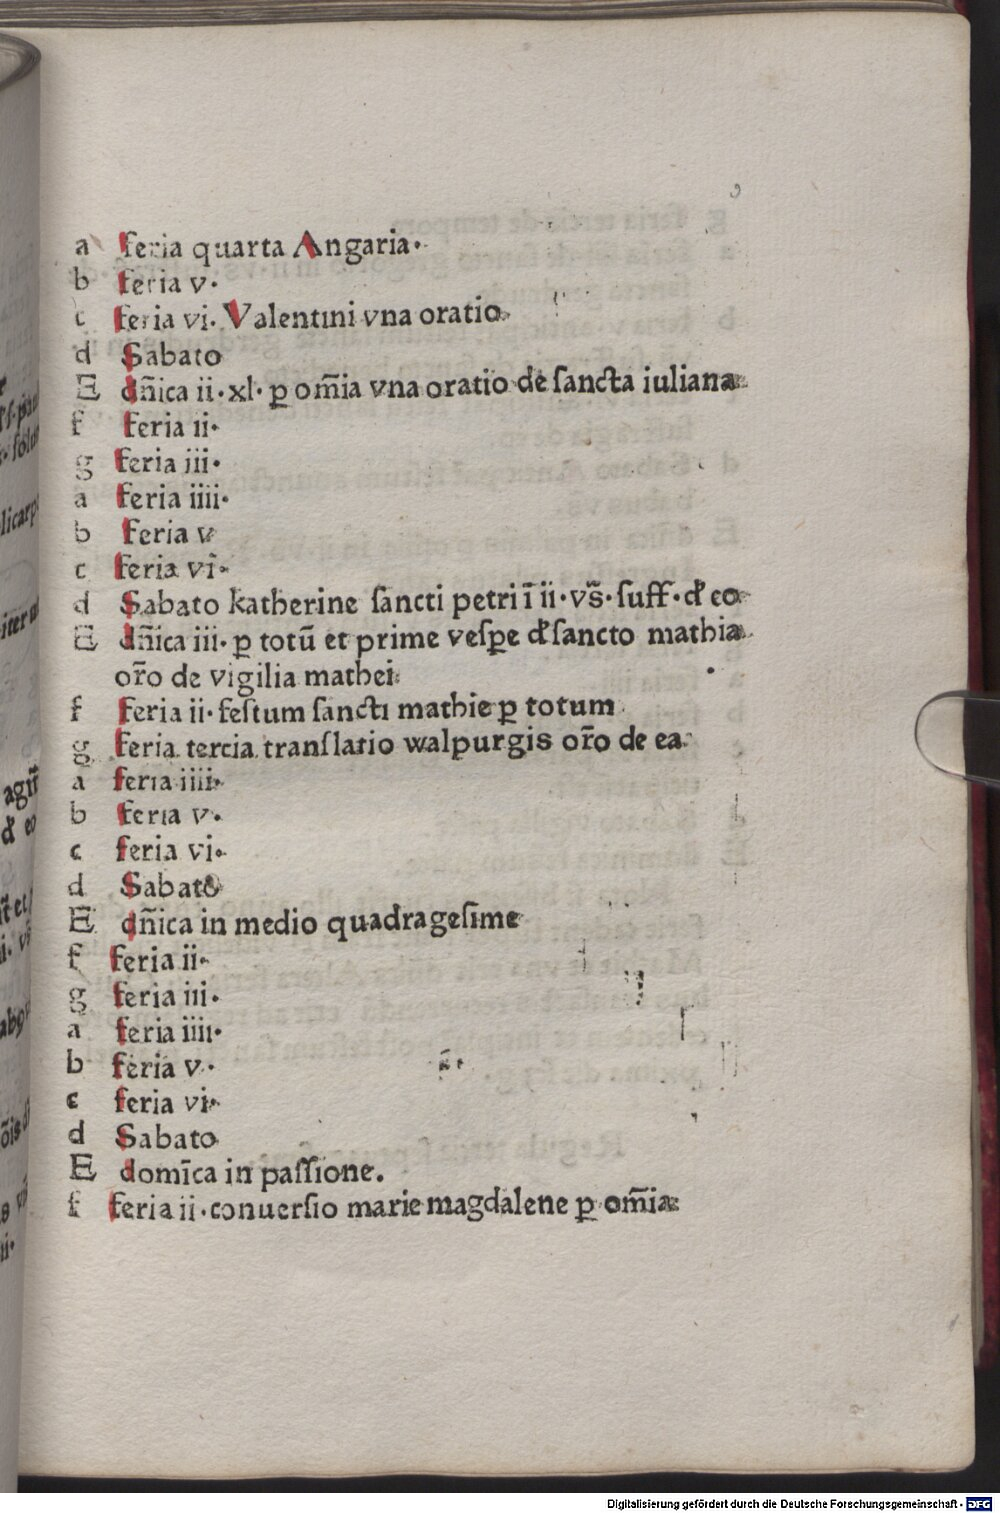 a feria quarta Angaria·
b feria v·
c feria vi· Valentini vna oratio
d Sabato
E dñica ii·xl· ꝑ om̃ia vna oratio de ſancta iuliana
f feria ii·
g feria iii·
a feria iiii·
b feria v
c feria vi·
d Sabato katherine ſancti petri ī ii·vs̃·ſuff·đ eo
E dñica iii· ꝑ totū et prime veſꝑe đ ſancto mathia
or̃o de vigilia mathei
f feria ii·feſtum ſancti mathie ꝑ totum
g feria tercia tranſlatio walpurgis or̃o de ea
a feria iiii·
b feria v·
c feria vi·
d Sabato
E dñica in medio quadrageſime
f feria ii·
g feria iii·
a feria iiii·
b feria v·
c feria vi·
d Sabato
E domīca in paſſione.
f feria ii·conuerſio marie magdalene ꝑ om̃ia
Digitalisierung gefördert durch die Deutsche Forschungsgemeinschaft - DFG